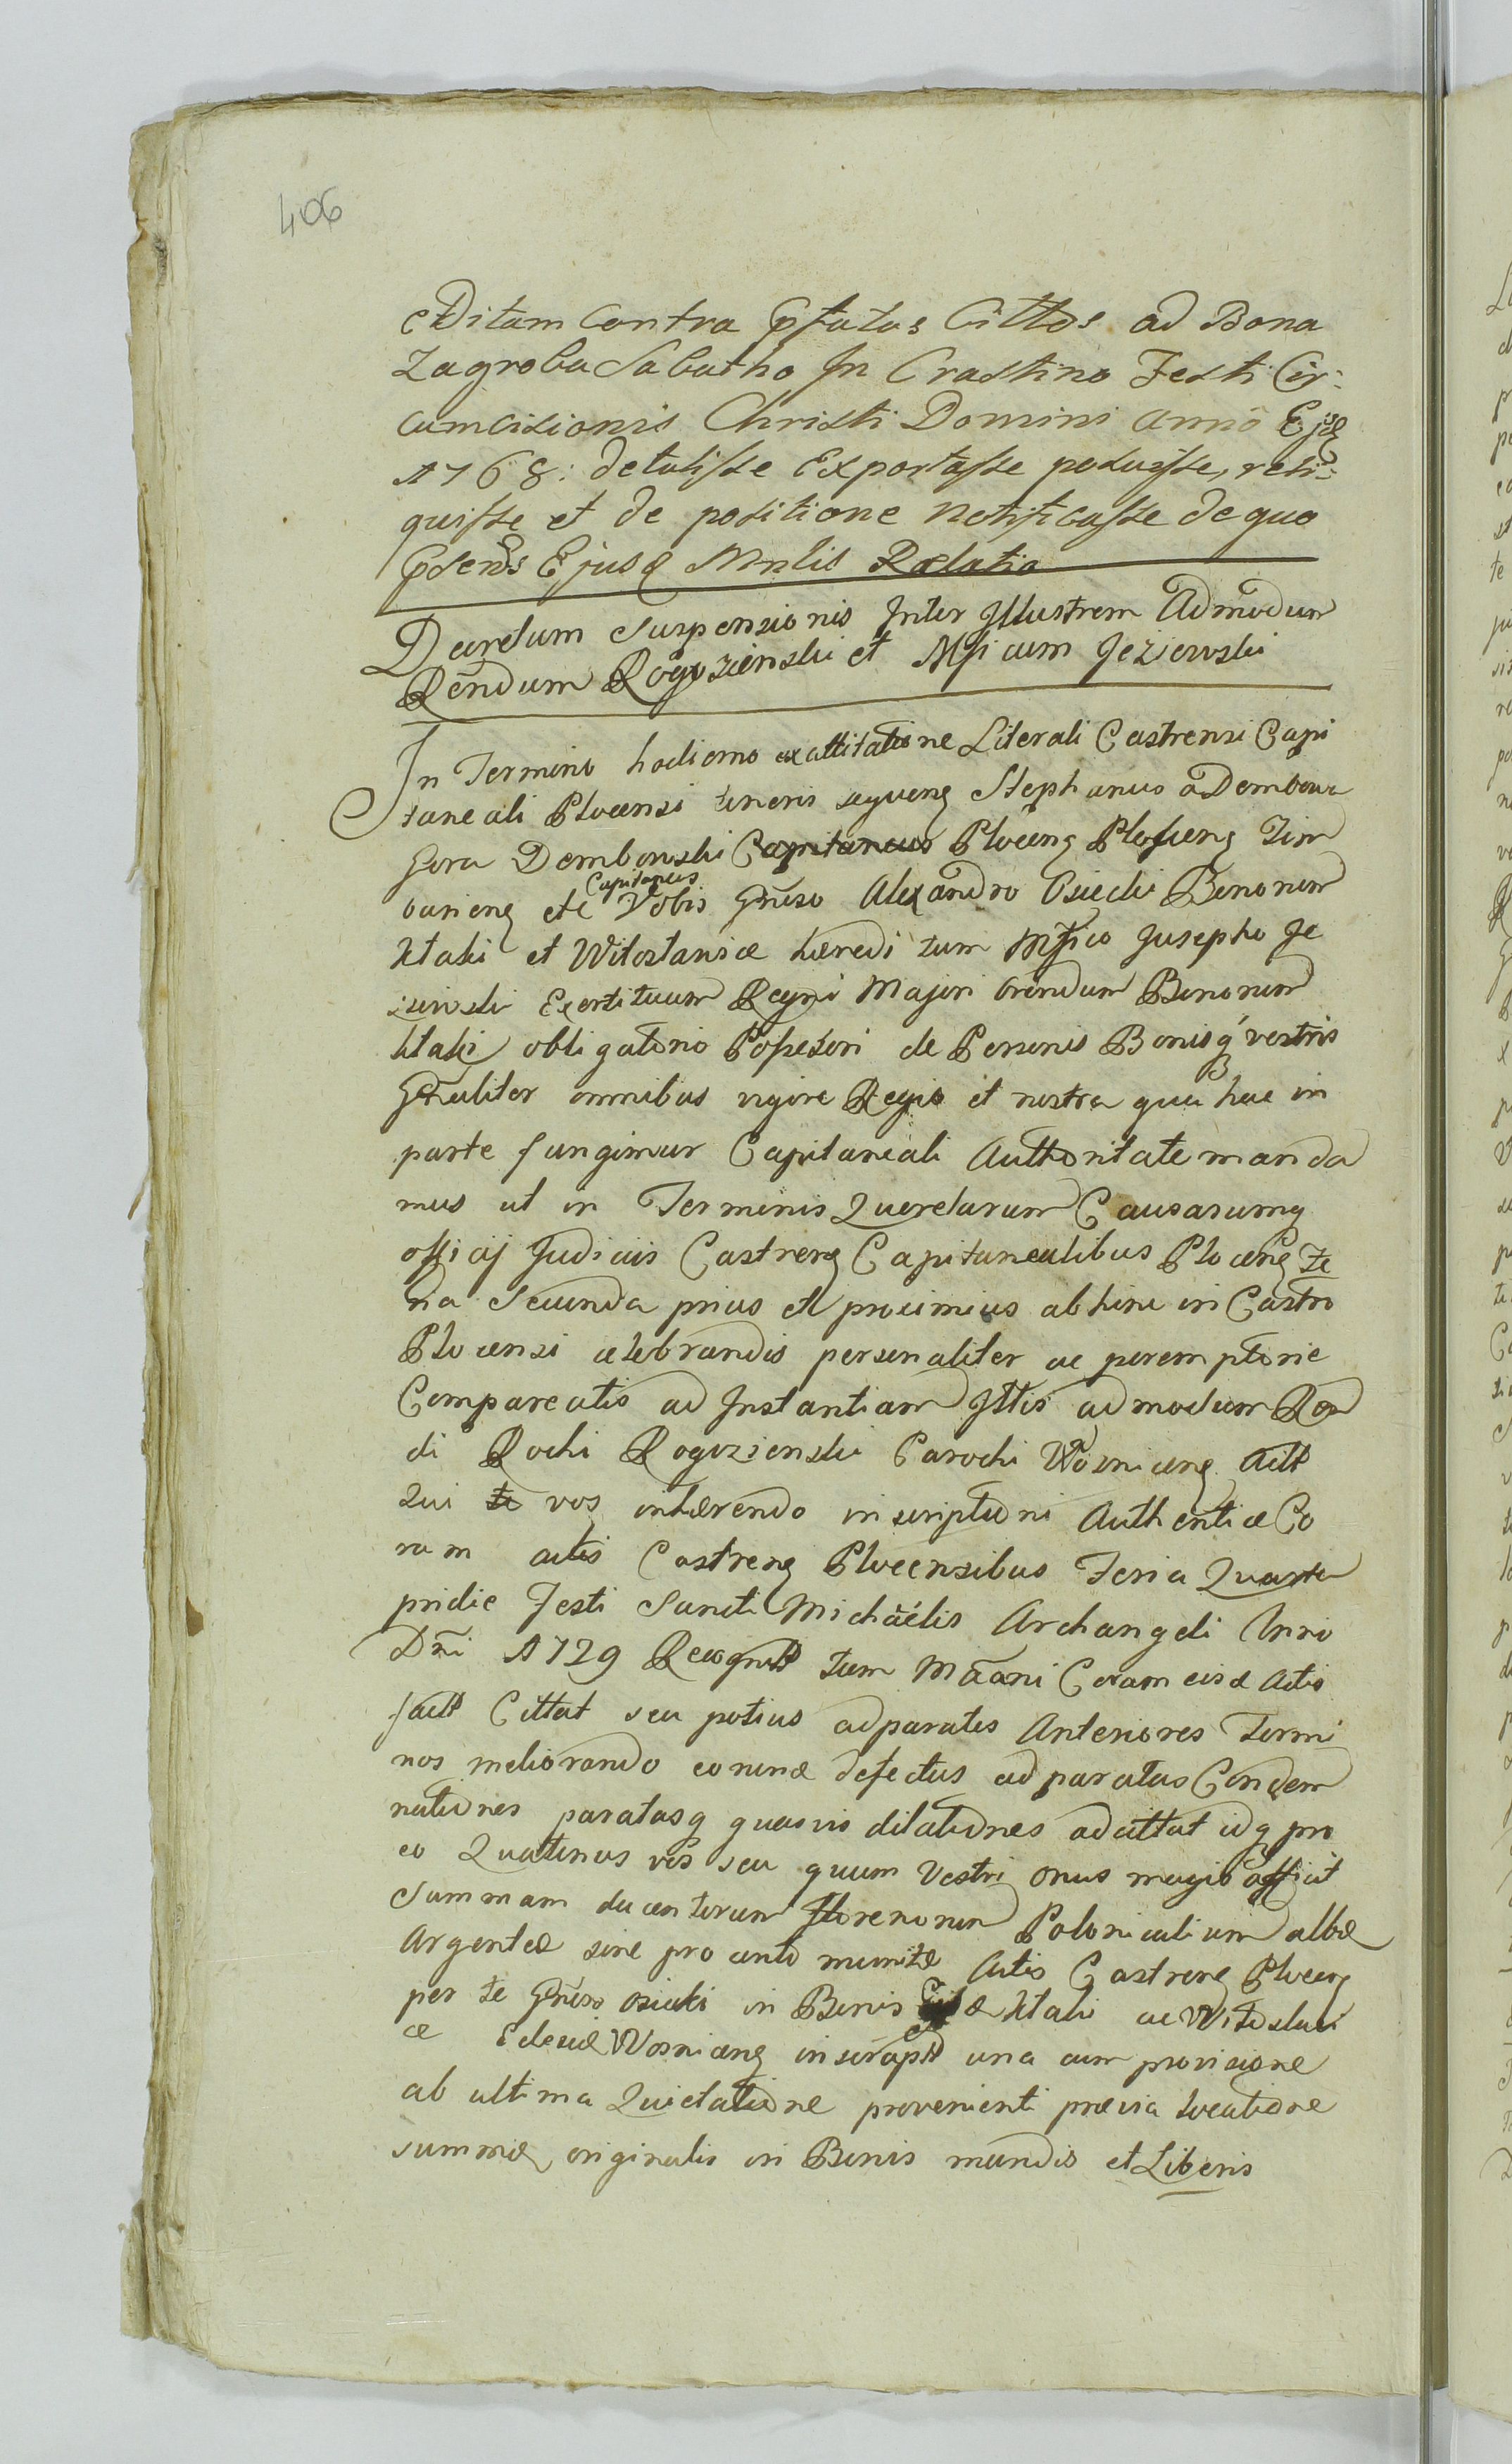 406
editam Contra Pfatos Cittos ad Bona
Zagroba Sabatho In Crastino Festi Cir:
cumcisionis Christi Domini anno Ejsq
1768: detulisse Exportasse posuisse, reli:
quisse et de positione notificasse de quo
Psens Ejusq Mnlis Relatio
Decretum Suspensionis Inter Illustrem Admodum
Rendum Rogozienski et Mficum Jezierski
In Termino hodierno ex attitatione Literali Castrensi Capi
taneali Plocensi tenoris sequeng Stephanus a Dembowa
Gora Dembowski Capitaneus Ploceng Plosceng
Capitaneus
etc Vobis Gnso Alexandro Osiecki Bonorum
Ktaki et Witostawice hæredi tum Mfico Jusepho Je
zierski Exertituum Regni Majori Bonorum
Ktaki obligatorio Possesori de Personis Bonisq vestris
Gnaliter omnibus vigore Regio et nostra qua hac in
parte fungimur Capitaneali Authoritate manda
mus ut in Terminis Querelarum Causarumq
officij Judiciis Castreng Capitanealibus Ploceng Fe
ria Secunda prius et proximius abhinc in Castro
Plocensi celebrandis personaliter ac peremptorie
Compareatis ad Instantiam Ittis admodum Ren
di Rochi Rogozienski Parochi Wozniceng Act
Qui te vos inhærendo inscriptioni Authenticæ Co
ram actis Castreng Plocensibus Feria Quarta
pridie Festi Sancti Michaëlis Archangeli Anno
Dni 1729 Recognit tum Coram eisd Actis
fact Cittat seu potius ad paratos Anteriores Termi
nos meliorando eorund defectus ad paratas Condem
nationes paratasq quasvis dilationes adcittat idq pro
eo Quatenus vos seu quem Vestri onus magis afficit
Summam ducentorum florenorum Polonicalium albæ
Argenteæ sive pro censo monetæ Actis Castreng Ploceng
per te Gnso Osiecki in Bonis Ktaki ac Witoslawi
ce Eclesiæ Wozniceng inscript una cum provisione
ab ultima Quietatione provenienti prævia locatione
summæ originalis in Bonis mundis et Liberis